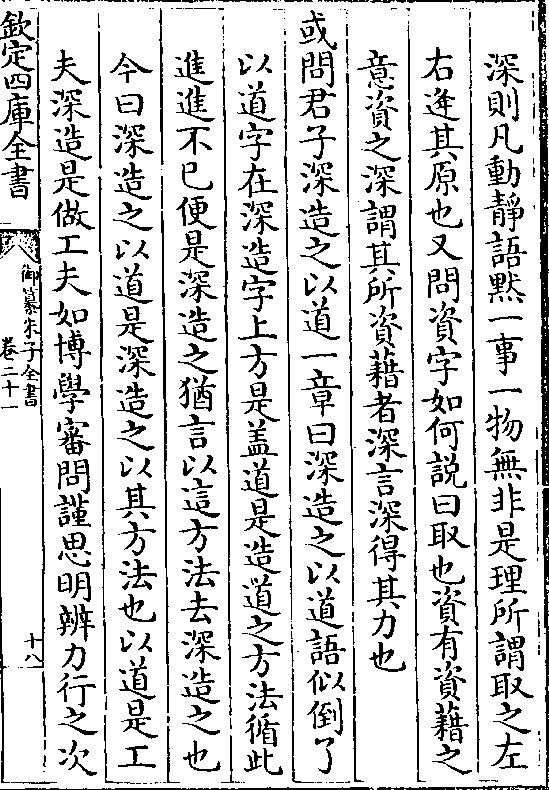 深則凡動靜語黙一事一物無非是理所謂取之左
右逢其原也又問資字如何説曰取也資有資藉之
意資之深謂其所資藉者深言深得其力也
或問君子深造之以道一章曰深造之以道語似倒了
以道字在深造字上方是盖道是造道之方法循此
進進不已便是深造之猶言以這方法去深造之也
今曰深造之以道是深造之以其方法也以道是工
夫深造是做工夫如博學審問謹思明辨力行之次
欽定四庫全書
御纂朱子全書
卷二十一
十八